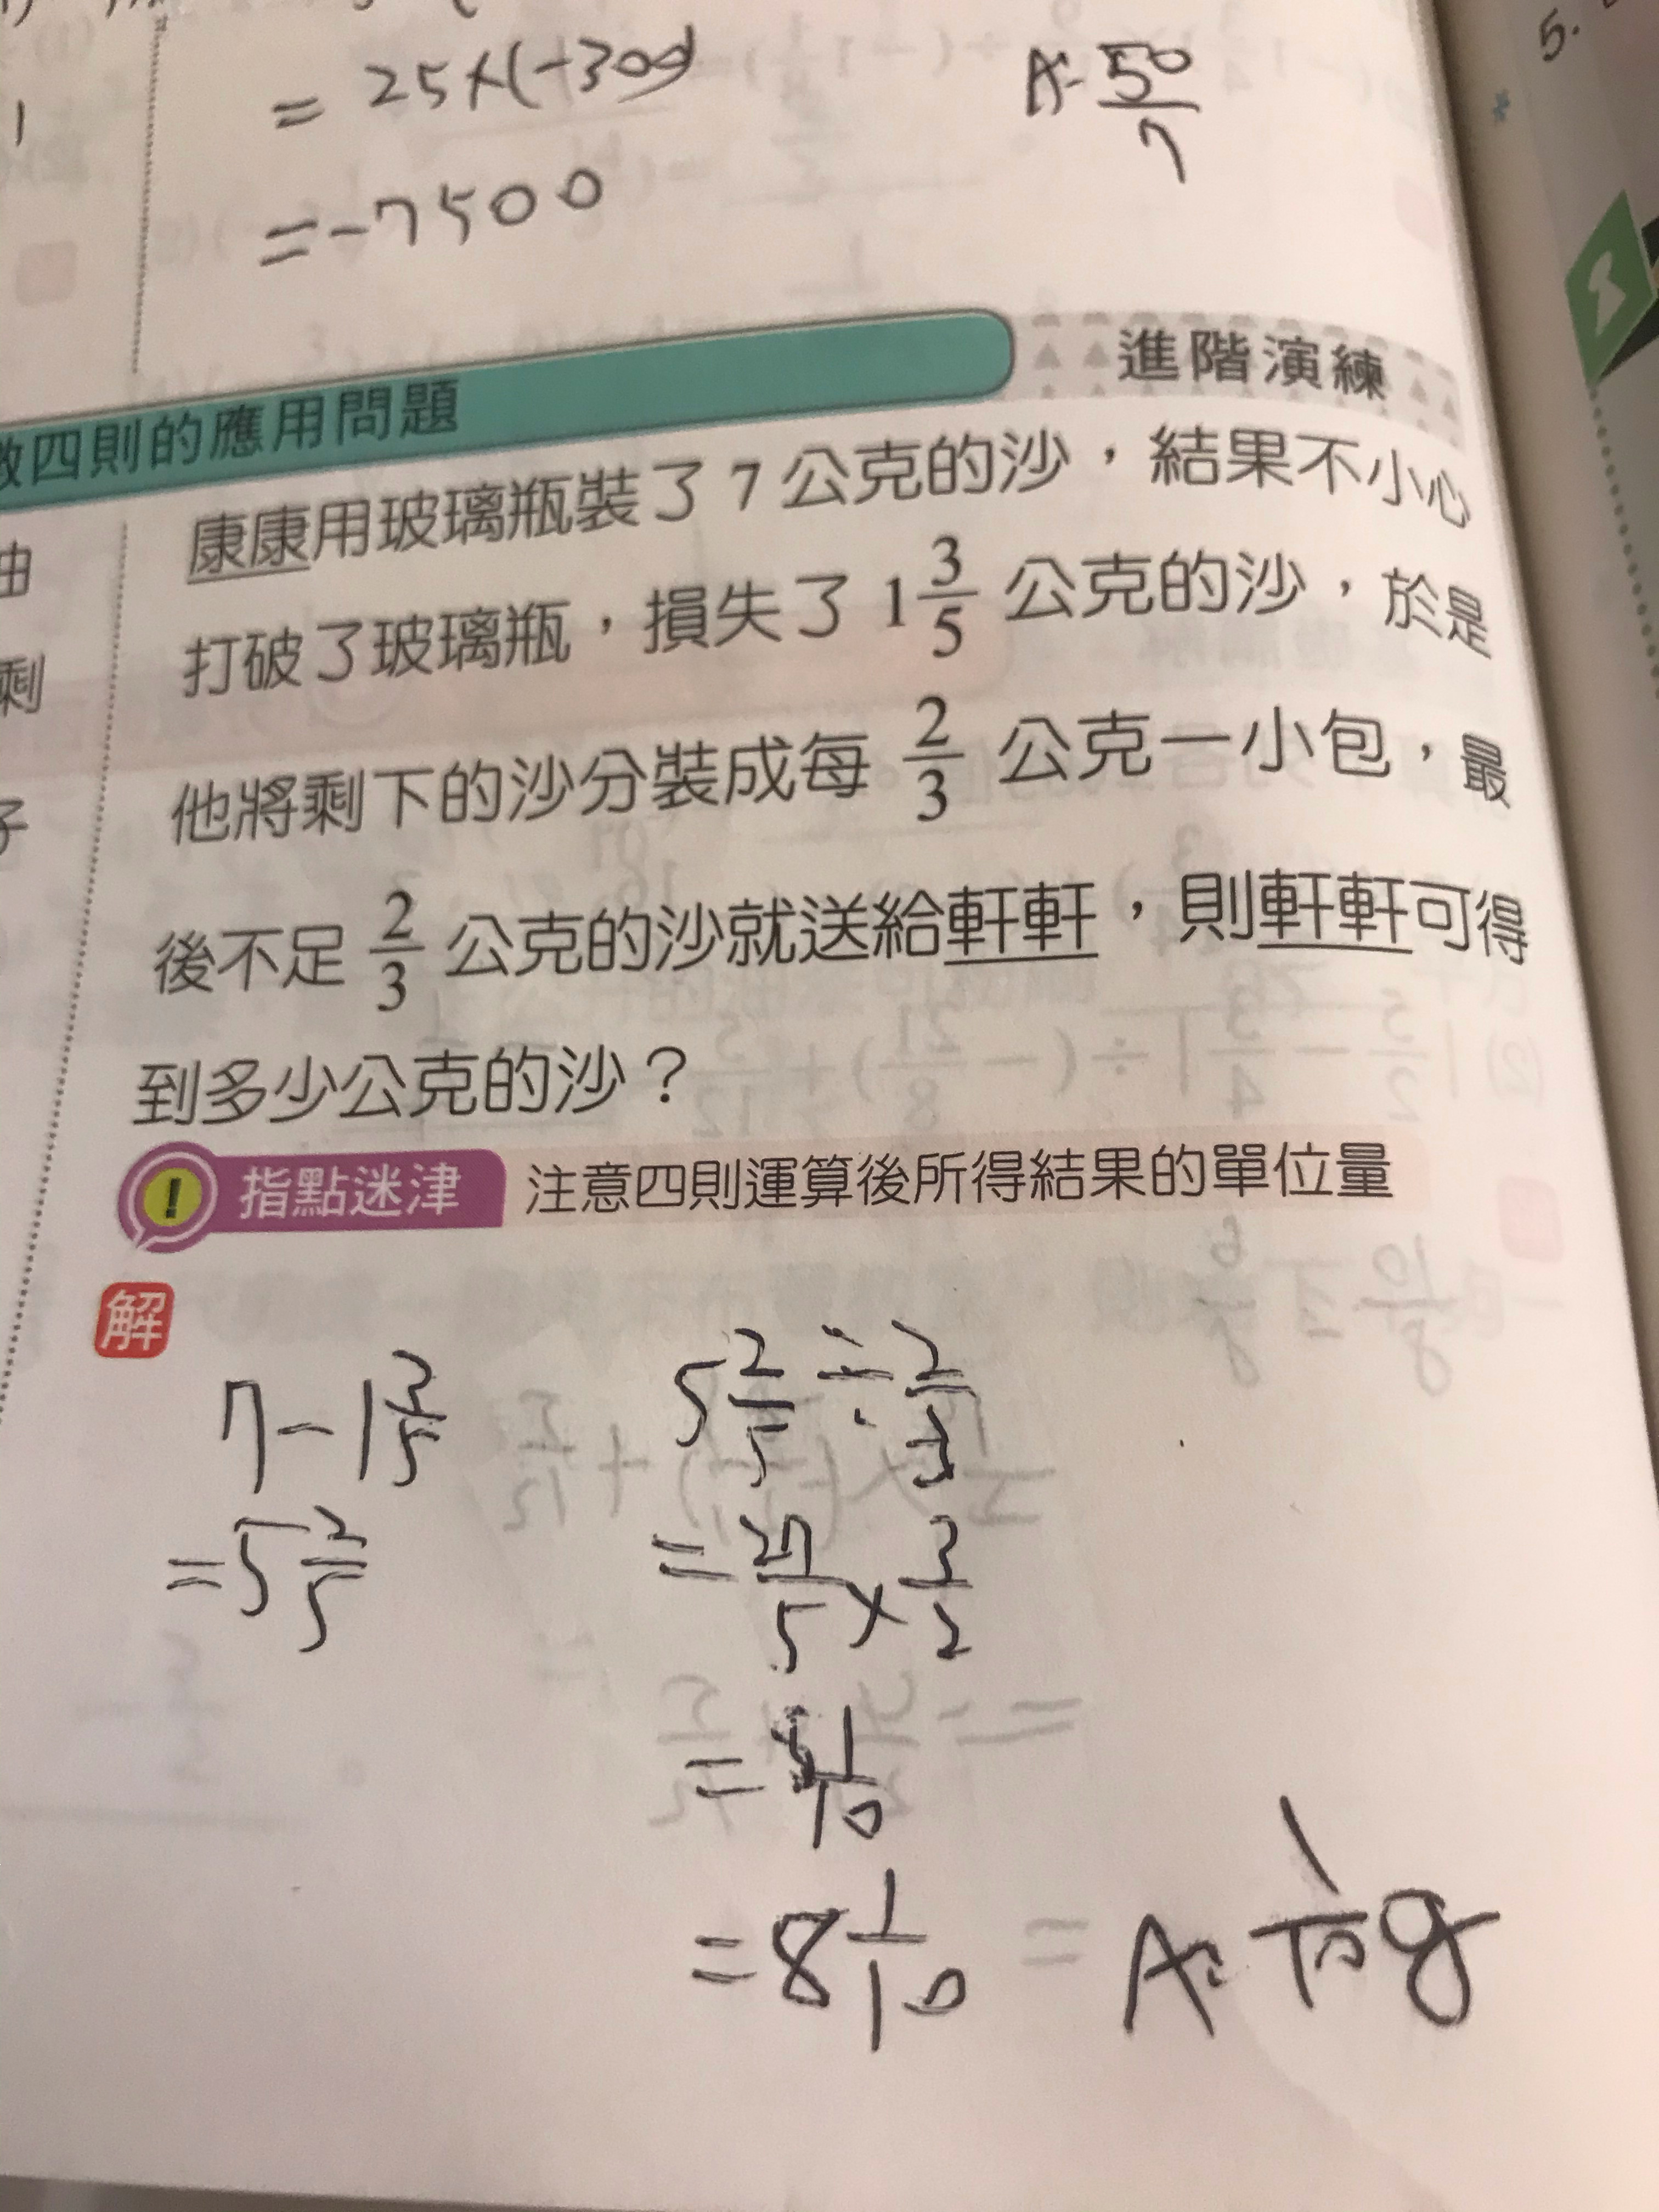 = 25×(-300)
= -7500
A: 50/7
5.
1
數四則的應用問題
進階演練
由
剩
子
康康用玻璃瓶裝了 7 公克的沙，結果不小心
打破了玻璃瓶，損失了 1 3/5 公克的沙，於是
他將剩下的沙分裝成每 2/3 公克一小包，最
後不足 2/3 公克的沙就送給軒軒，則軒軒可得
到多少公克的沙？
! 指點迷津 注意四則運算後所得結果的單位量
解
7 - 1 3/5
= 5 2/5
5 2/5 ÷ 2/3
= 27/5 × 3/2
= 81/10
= 8 1/10
A: 1/10 g